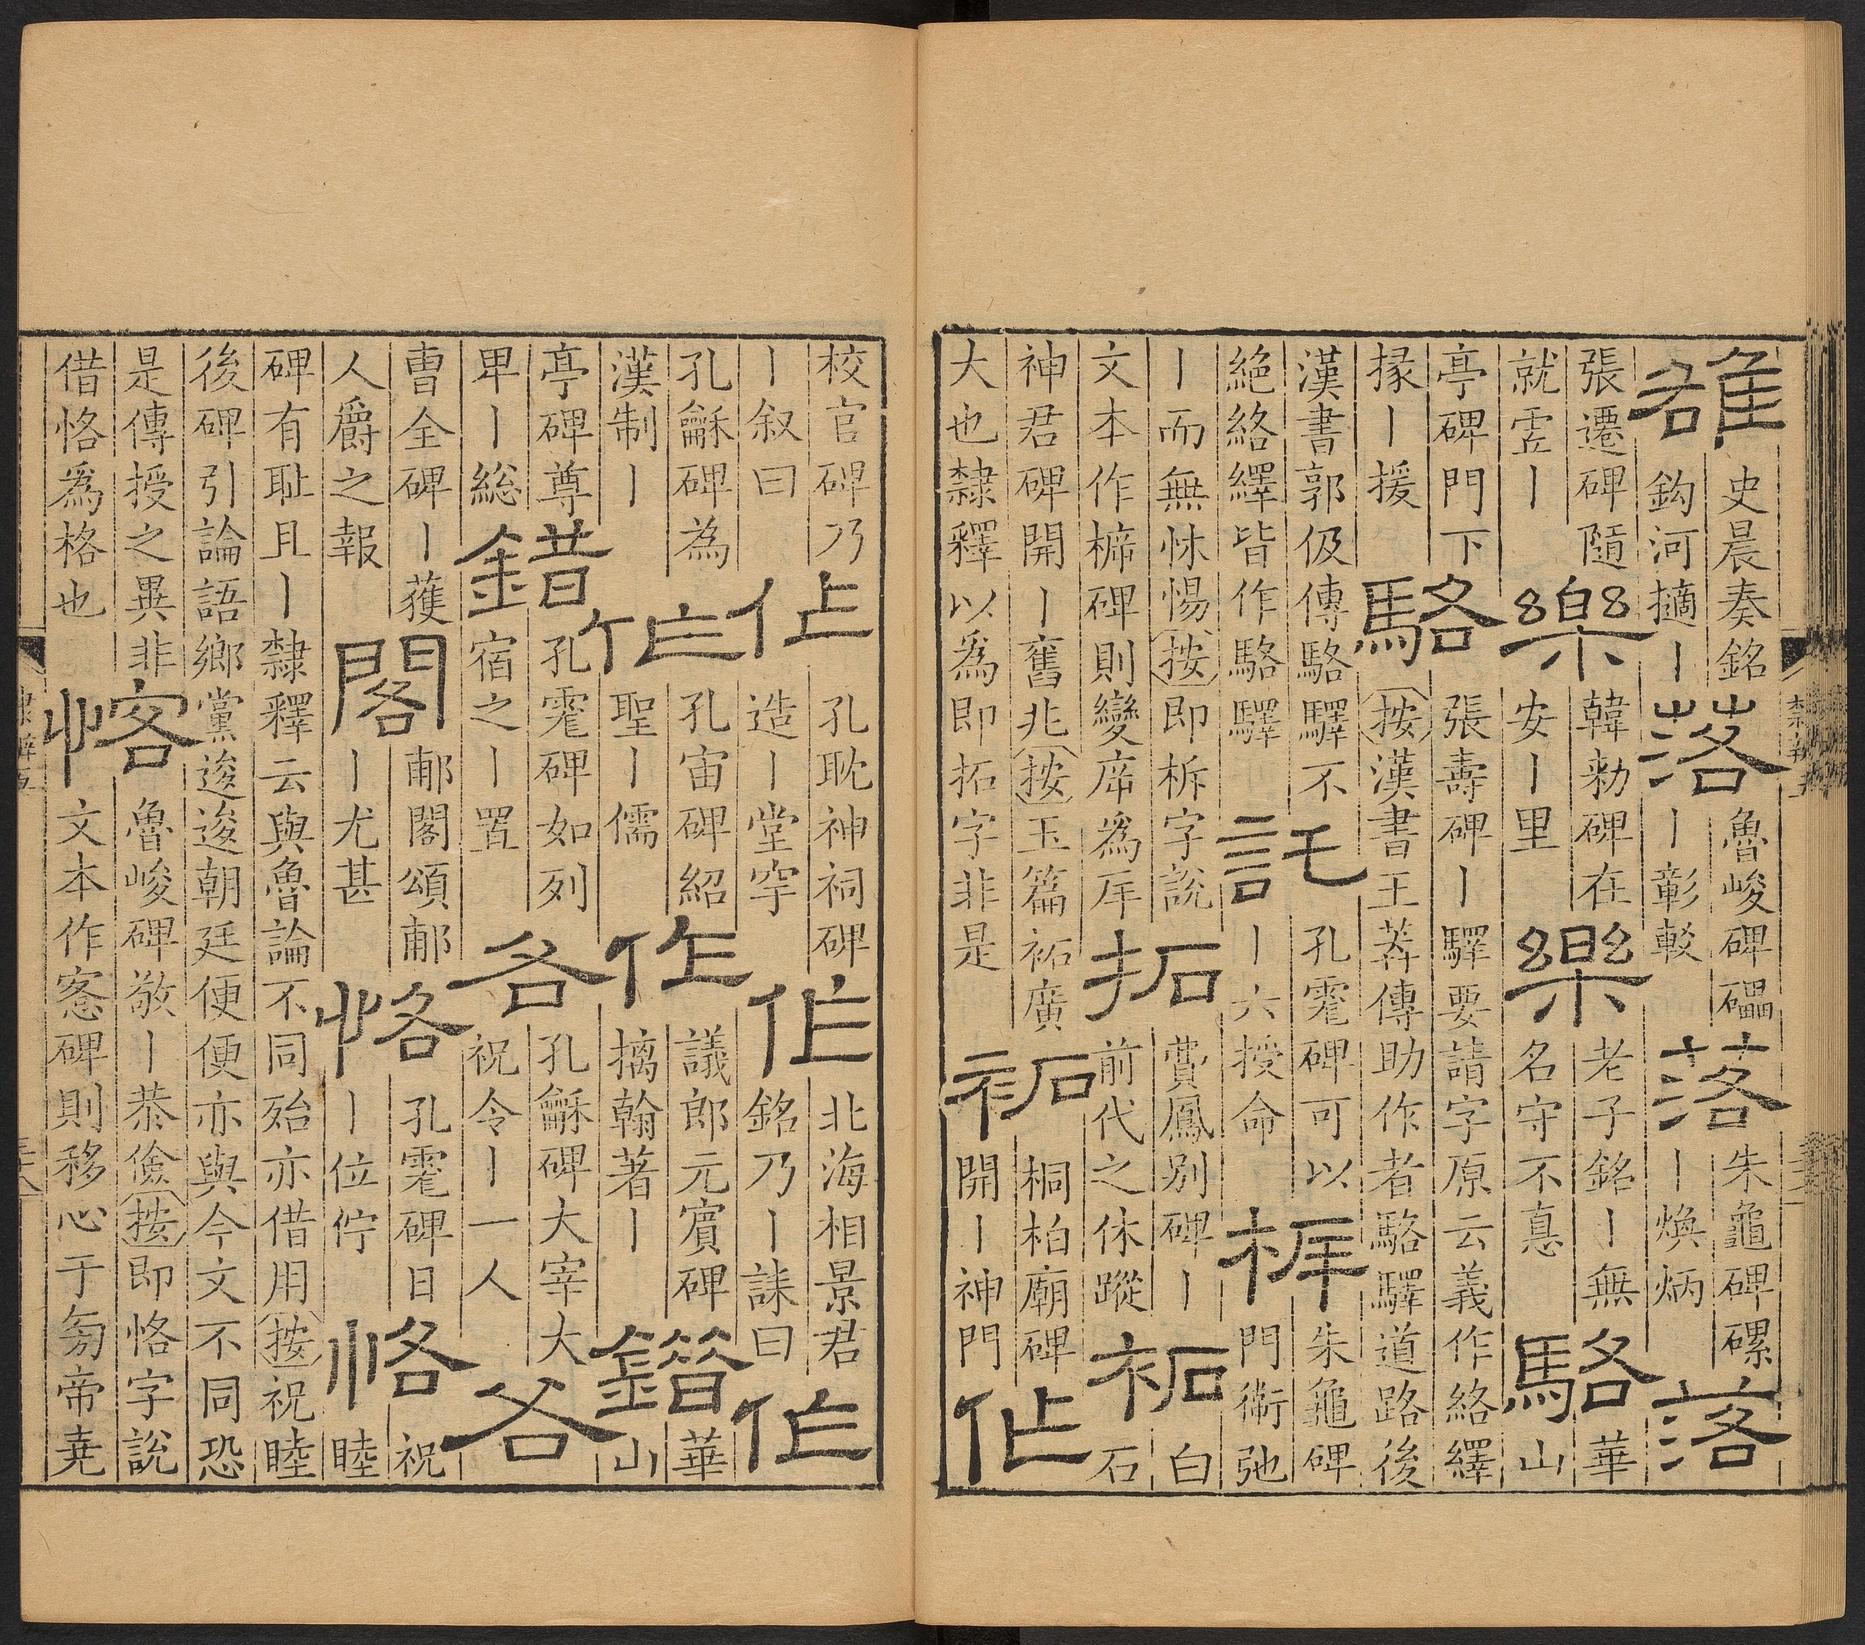 雒史晨奏銘鈎河擿丨落魯峻碑礧丨彰較落朱龜碑磥丨煥炳落
張遷碑隨就虛丨樂韓勑碑在安丨里樂老子銘丨無名守不悳駱華山
亭碑門下掾丨援駱張壽碑丨驛要請字原云義作絡繹按漢書王莽傳助作者駱驛道路後
漢書郭伋傳駱驛不絕絡繹皆作駱驛託孔霍碑可以丨六授命柝朱龜碑門衛弛
丨而無怵惕按即柝字說文本作㯕碑則變㡿為厈拓費鳳別碑丨前代之休蹤祏白石
神君碑開丨舊兆按玉篇祏廣大也隸釋以為即拓字非是祏桐柏廟碑開丨神門作
校官碑乃丨叙曰作孔耽神祠碑造丨堂穻作北海相景君銘乃丨誄曰作
孔龢碑為漢制丨作孔宙碑紹聖丨儒作議郎元賓碑摛翰著丨錯華山
亭碑尊卑丨総錯孔霍碑如列宿之丨置各孔龢碑大宰大祝令丨一人各
曹全碑丨獲人爵之報閣郙閣頌郙丨尤甚恪孔霍碑日丨位佇恪祝睦
碑有耻且丨隸釋云與魯論不同殆亦借用按祝睦後碑引論語鄉黨逡逡朝廷便便亦與今文不同恐
是傳授之異非借恪為格也恪魯峻碑敬丨恭儉按即恪字說文本作愙碑則移心于旁帝堯